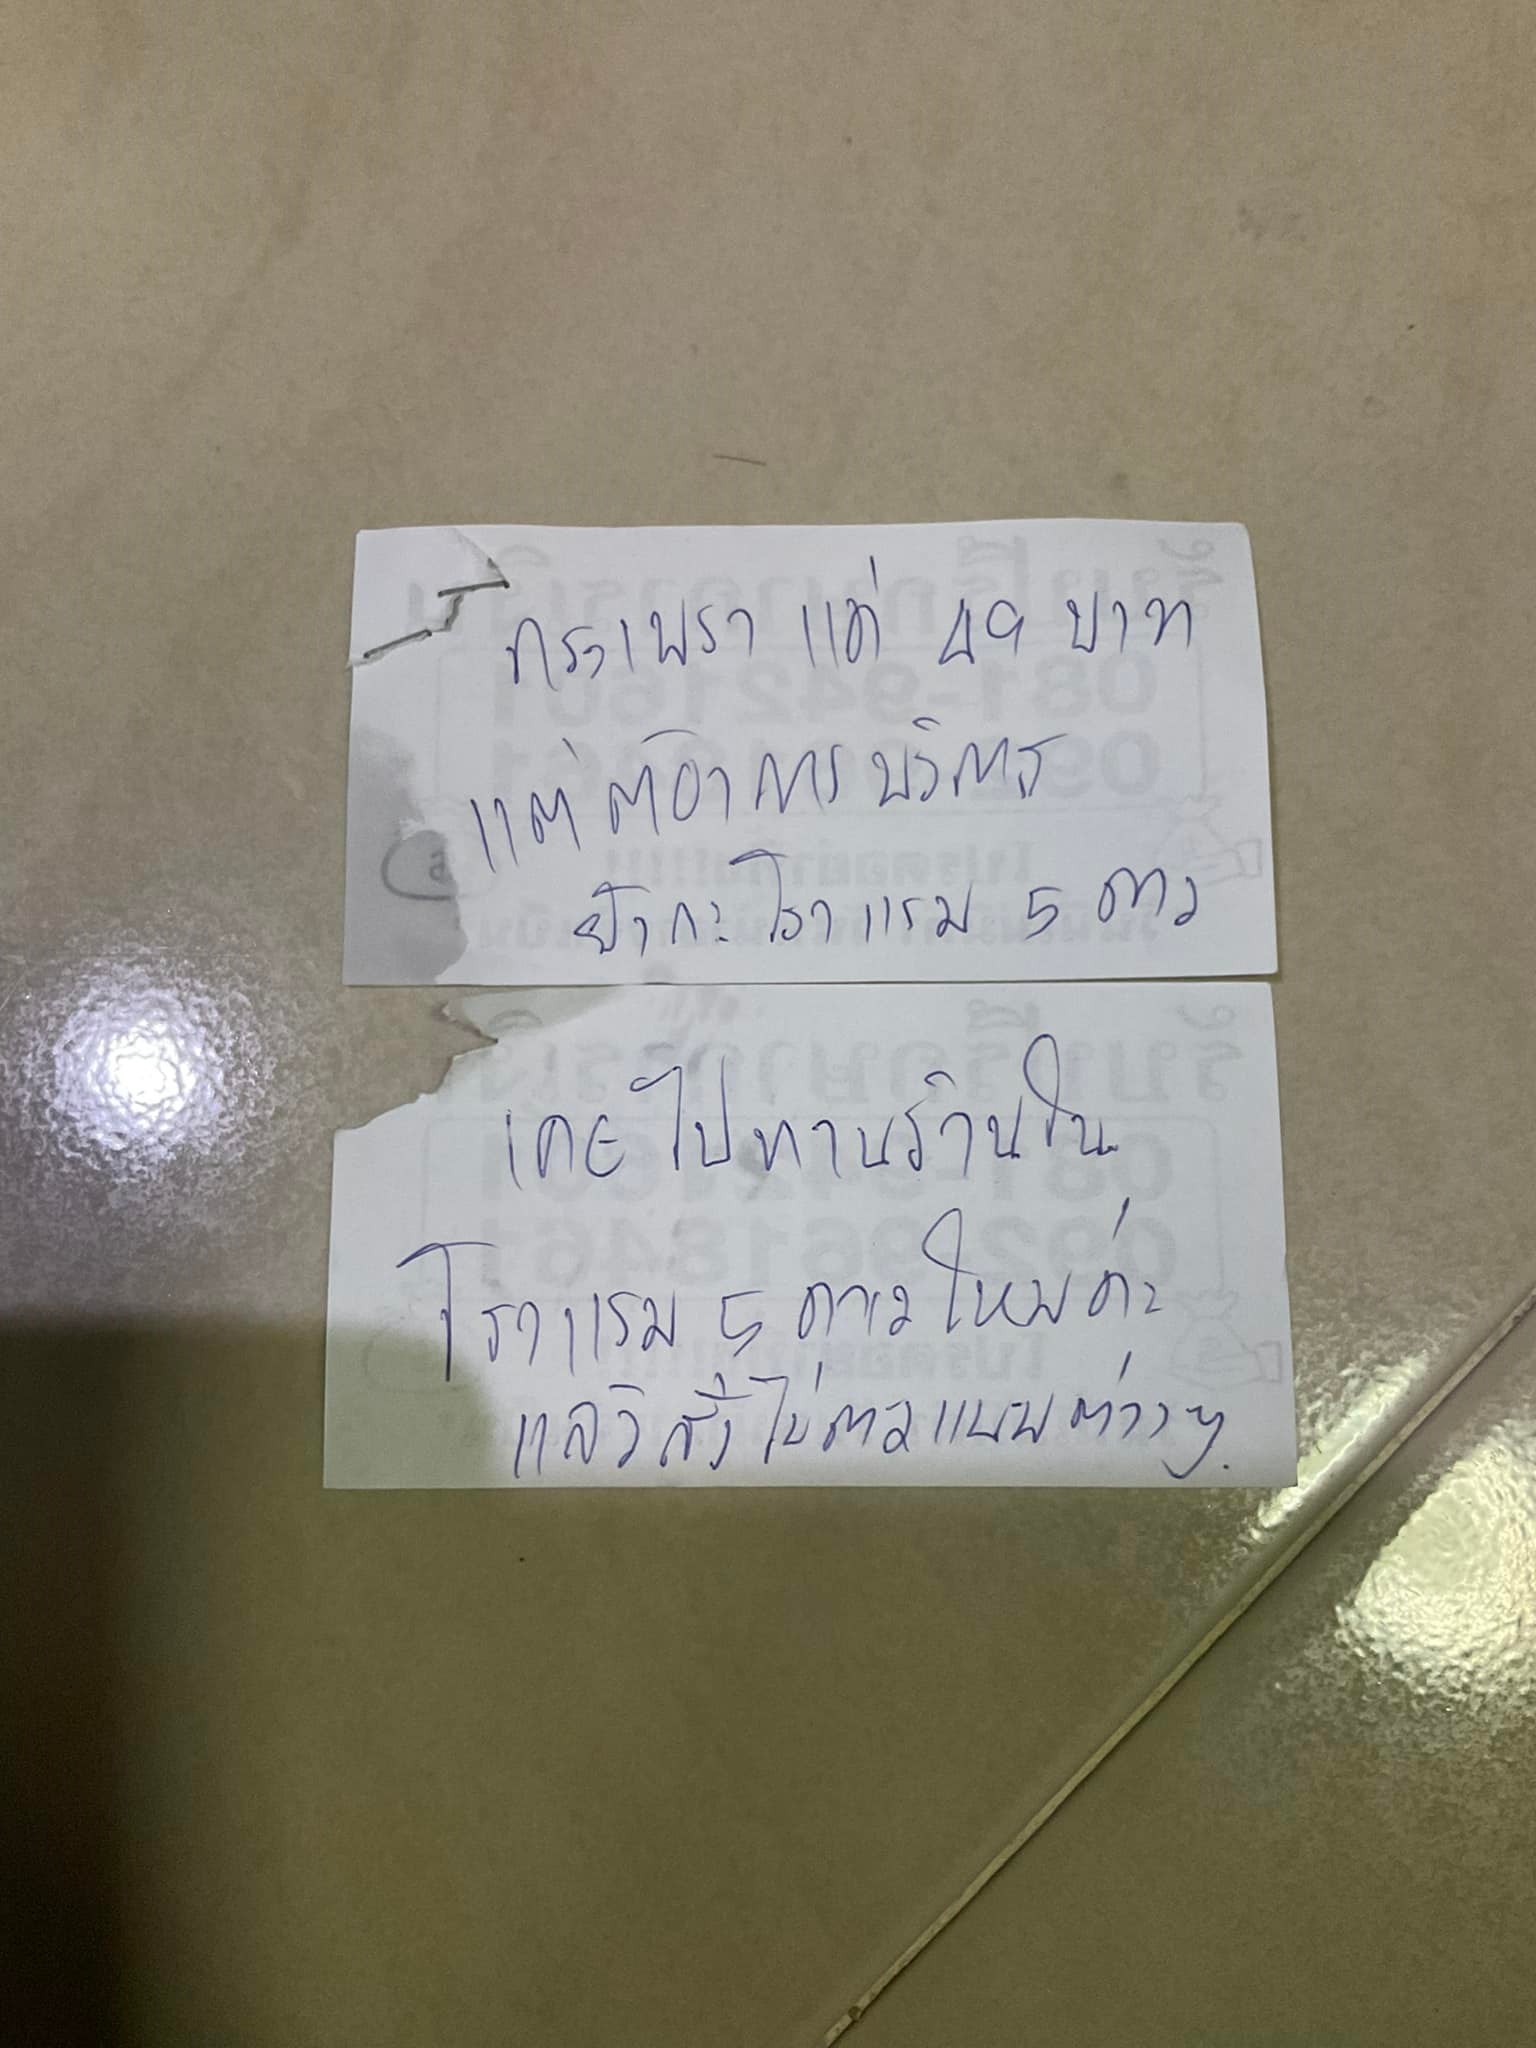 กระเพรา แค่ 49 บาท
แต่ ต้องการ บริการ
ยังกะ โรงแรม 5 ดาว
เคยไปทานร้านใน
โรงแรม 5 ดาวไหมค่ะ
แล้วสั่งไปตามแบบต่างๆ